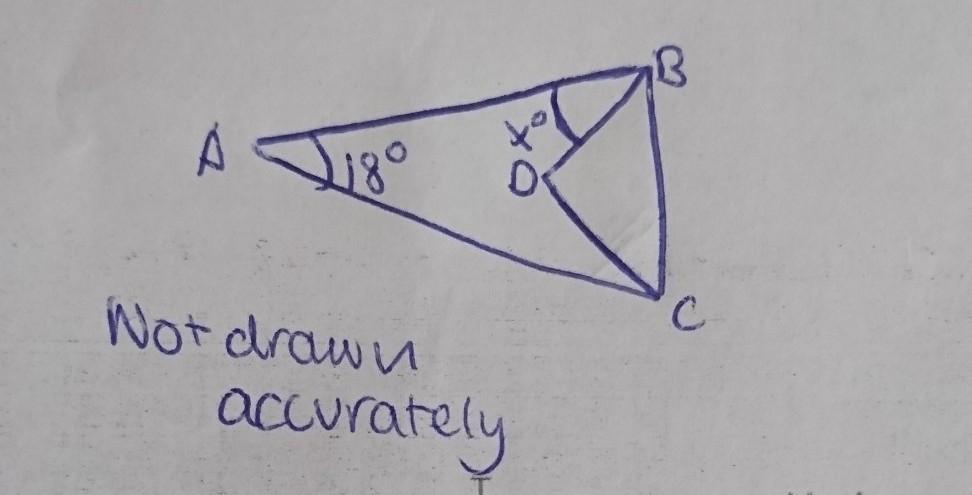 B
A
18°
x°
D
C
Not drawn
accurately